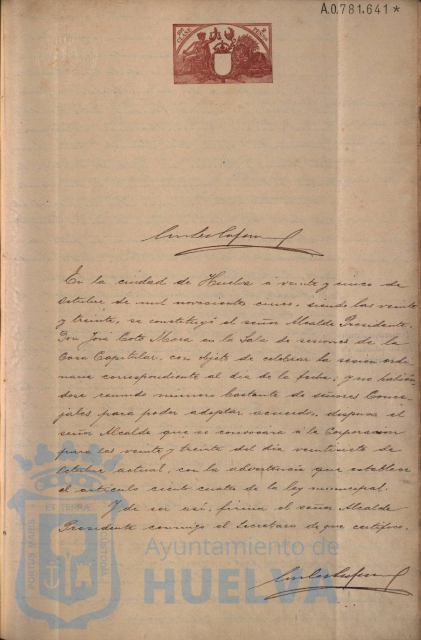 A.0.781.641*
En la ciudad de Huelva á veinte y cinco de
Octubre de mil novecientos cinco, siendo las veinte
y treinta, se constituyó el señor Alcalde Presidente,
Don José Coto Mora en la Sala de sesiones de la
Casa Capitular, con objeto de celebrar la sesion ordi-
naria correspondiente al dia de la fecha, y no habién-
dose reunido número bastante de señores Conce-
jales para poder adoptar acuerdo, dispuso el
señor Alcalde que se convocara á la Corporacion
para las veinte y treinta del dia veintisiete de
Octubre actual, con la advertencia que establece
el artículo ciento cuatro de la ley municipal.
Y de ser asi, firma el señor Alcalde
Presidente conmigo el Secretario de que certifico.
PORTUS MARIS
ET TERRÆ
CUSTODIA
Ayuntamiento de
HUELVA